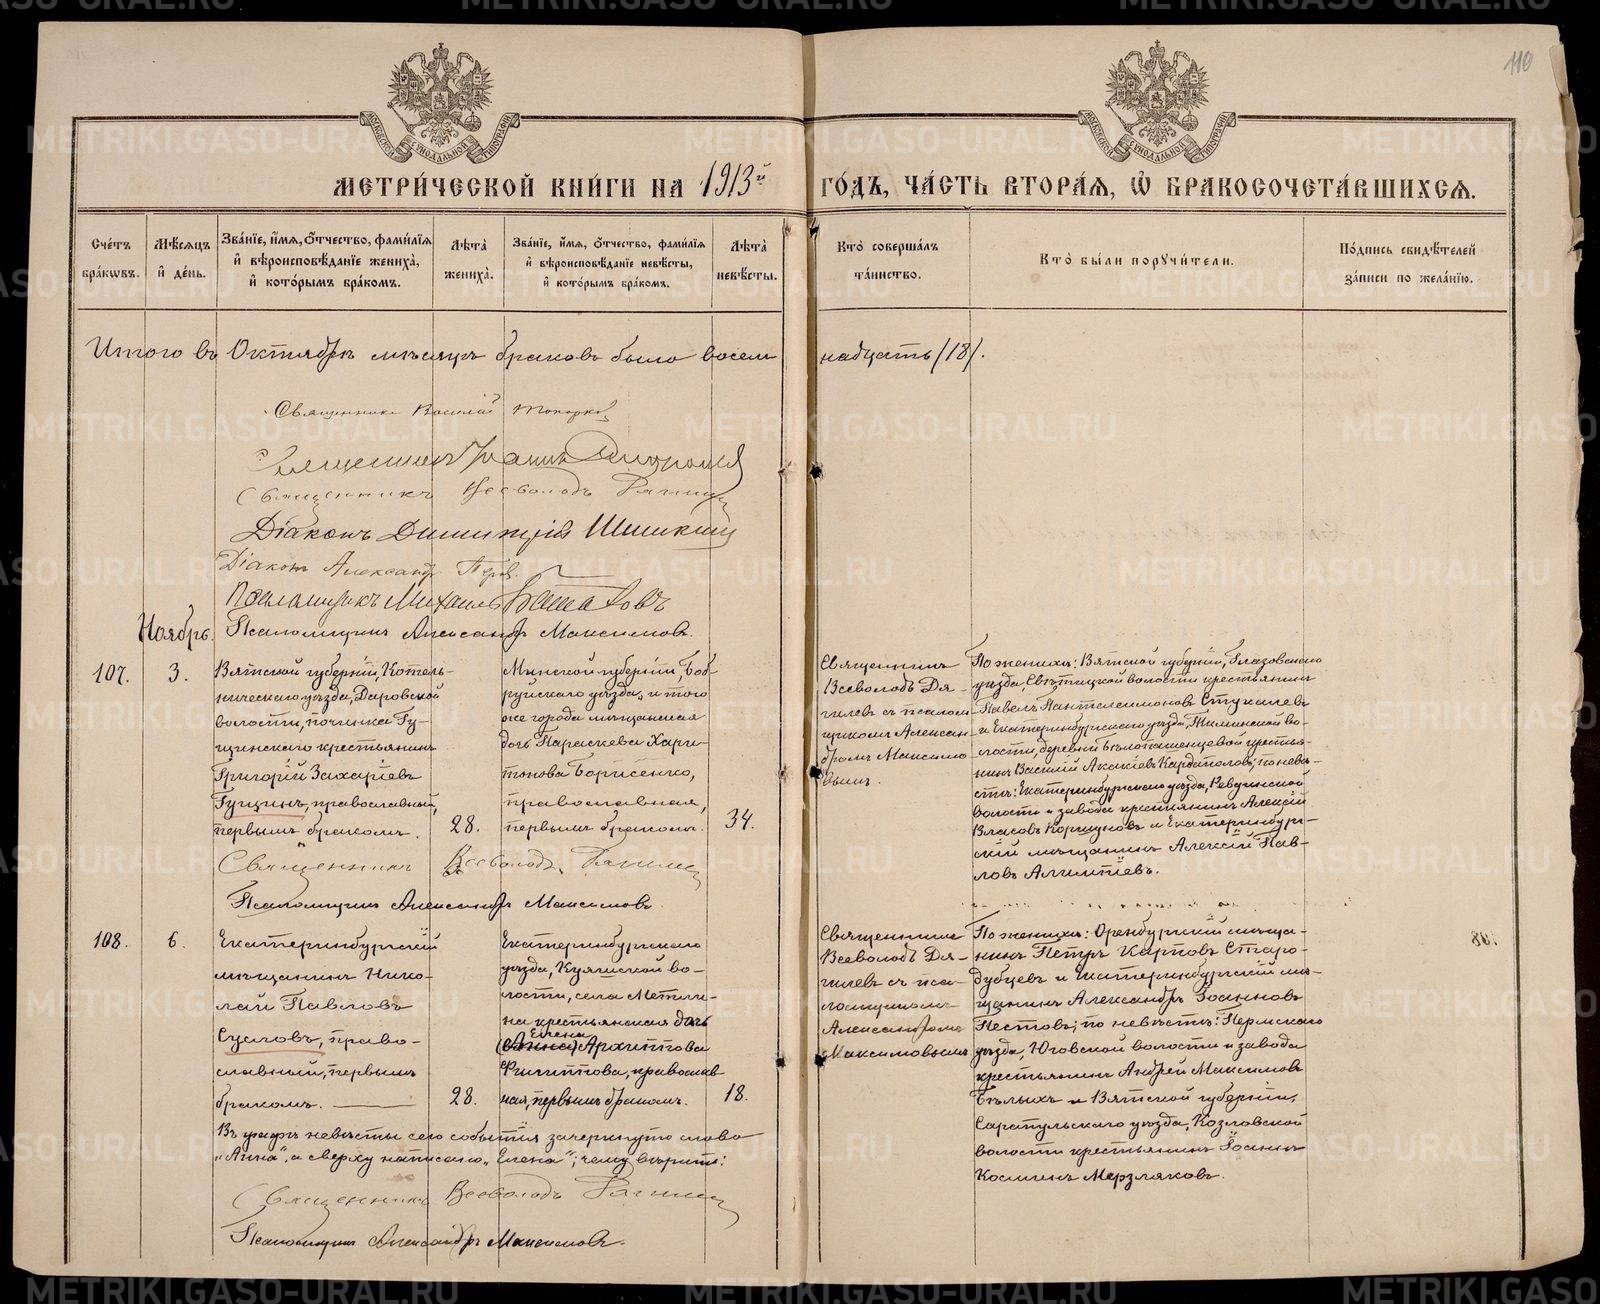 110
МЕТРИ́ЧЕСКОЙ КНИ́ГИ НА 1913й ГО́ДЪ, ЧА́СТЬ ВТОРА́Я, Ѡ҆ БРАКОСОЧЕТА́ВШИХСЯ.
Сче́тъ бра́кѡвъ.
Мѣ́сяцъ и҆ де́нь.
Зва́нїе, и҆́мя, ѻ҆́тчество, фами́лїя и҆ вѣроисповѣ́данїе жениха̀, и҆ кото́рымъ бра́комъ.
Лѣ́та жениха̀.
Зва́нїе, и҆́мя, ѻ҆́тчество, фами́лїя и҆ вѣроисповѣ́данїе невѣ́сты, и҆ кото́рымъ бра́комъ.
Лѣ́та невѣ́сты.
Кто̀ соверша́лъ та́инство.
Кто̀ бы́ли порꙋчи́тели.
По́дпись свидѣ́телей за́писи по жела́нїю.
Итого въ Октябрѣ мѣсяцѣ браковъ было восемнадцать /18/.
Священникъ Василій Топорковъ
Священникъ Іоаннъ
Священникъ Всеволодъ Дягилевъ
Діаконъ Димитрій Шишкинъ
Діаконъ Александръ
Псаломщикъ Михаилъ
Псаломщикъ Александръ Максимовъ.
Ноябрь.
107.
3.
Вятской губерніи, Котель-
ническаго уѣзда, Даровской
волости, починка Гу-
щинскаго крестьянинъ
Григорій Захаріевъ
Гущинъ, православный,
первымъ бракомъ.
28.
Минской губерніи, Боб-
руйскаго уѣзда, и того
же города мѣщанская
дочь Параскева Хари-
тонова Борисенко,
православная,
первымъ бракомъ.
34.
Священникъ
Всеволодъ Дя-
гилевъ съ псалом-
щикомъ Алексан-
дромъ Максимо-
вымъ.
По женихѣ: Вятской губерніи, Глазовскаго
уѣзда, Святицкой волости крестьянинъ
Павелъ Пантелеимоновъ Стукалевъ
и Екатеринбургскаго уѣзда, Тиминской во-
лости, деревни Бѣлопашенцевой крестья-
нинъ Василій Акакіевъ Кардаполовъ; по невѣ-
стѣ: Екатеринбургскаго уѣзда, Ревдинской
волости и завода крестьянинъ Алексій
Власовъ Коршуновъ и Екатеринбург-
скій мѣщанинъ Алексій Пав-
ловъ Алимпіевъ.
Священникъ Всеволодъ Дягилевъ
Псаломщикъ Александръ Максимовъ.
108.
6.
Екатеринбургскій
мѣщанинъ Нико-
лай Павловъ
Сусловъ, право-
славный, первымъ
бракомъ.
28.
Екатеринбургскаго
уѣзда, Куяшской во-
лости, села Метли-
на крестьянская дочь
Елена
(Анна) Архиппова
Филиппова, православ-
ная, первымъ бракомъ.
18.
Священникъ
Всеволодъ Дя-
гилевъ съ пса-
ломщикомъ
Александромъ
Максимовымъ
По женихѣ: Оренбургскій мѣща-
нинъ Петръ Карповъ Старо-
дубцевъ и Екатеринбургскій мѣ-
щанинъ Александръ Іоанновъ
Пестовъ; по невѣстѣ: Пермскаго
уѣзда, Юговской волости и завода
крестьянинъ Андрей Максимовъ
Бѣлыхъ и Вятской губерніи,
Сарапульскаго уѣзда, Козловской
волости крестьянинъ Іоаннъ
Косминъ Мерзляковъ.
Въ графѣ невѣсты сего событія зачеркнуто слово
"Анна", а сверху написано "Елена"; чему вѣрить:
Священникъ Всеволодъ Дягилевъ
Псаломщикъ Александръ Максимовъ.
METRIKI.GASO-URAL.RU